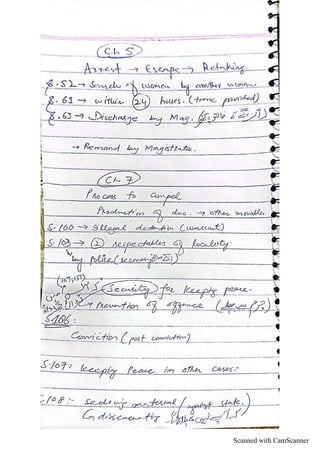 Ch 5
Arrest → Escape → Retaking.
S.52 → Search of women by another women.
S.61 → within 24 hours. (time provided)
S.63 → Discharge by Mag.
→ Remand by Magistrate.
Ch 7
Process to compel
Production of doc. → other movables.
S.100 → Illegal detention (warrant)
S.103 → 2 respectables of locality
by Police
(107,151)
(Security) for keeping peace.
→ Prevention of offence
S.106
Conviction (post conviction)
S.107: Keeping Peace in other cases:-
S.108:- material (against state.)
Scanned with CamScanner